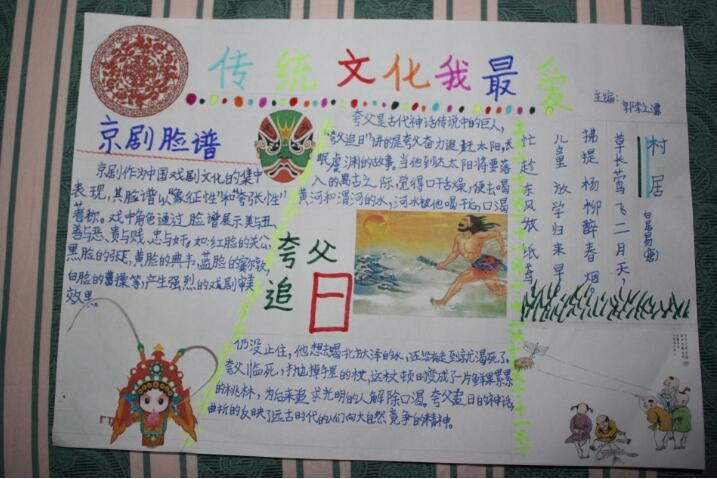 传统文化我最爱
主编：
京剧脸谱
京剧作为中国戏剧文化的集中
表现，其脸谱以"象征性"和"夸张性"
著称。戏中角色通过脸谱展示美与丑、
善与恶、贵与贱、忠与奸。如：红脸的关公，
黑脸的张飞，黄脸的典韦，蓝脸的窦尔敦，
白脸的曹操等，产生强烈的戏剧审美
效果。
夸父是古代神话传说中的巨人，
"夸父追日"讲的是夸父奋力追赶太阳，
虞渊的故事。当他到达太阳将要落
入的禺古之际，觉得口干舌燥，便去喝
黄河和渭河的水，河水被他喝干后，口渴
夸父
追
日
仍没止住，他想去喝北方大泽的水，还没有走到就渴死了。
夸父临死，抛掉手里的杖，这杖顿时变成了一片鲜果累累
的桃林，为后来追求光明的人解除口渴。夸父追日的神话，
曲折的反映了远古时代的人们向大自然竞争的精神。
村居
草长莺飞二月天，
拂提杨柳醉春烟。
儿童放学归来早
忙趁东风放纸鸢